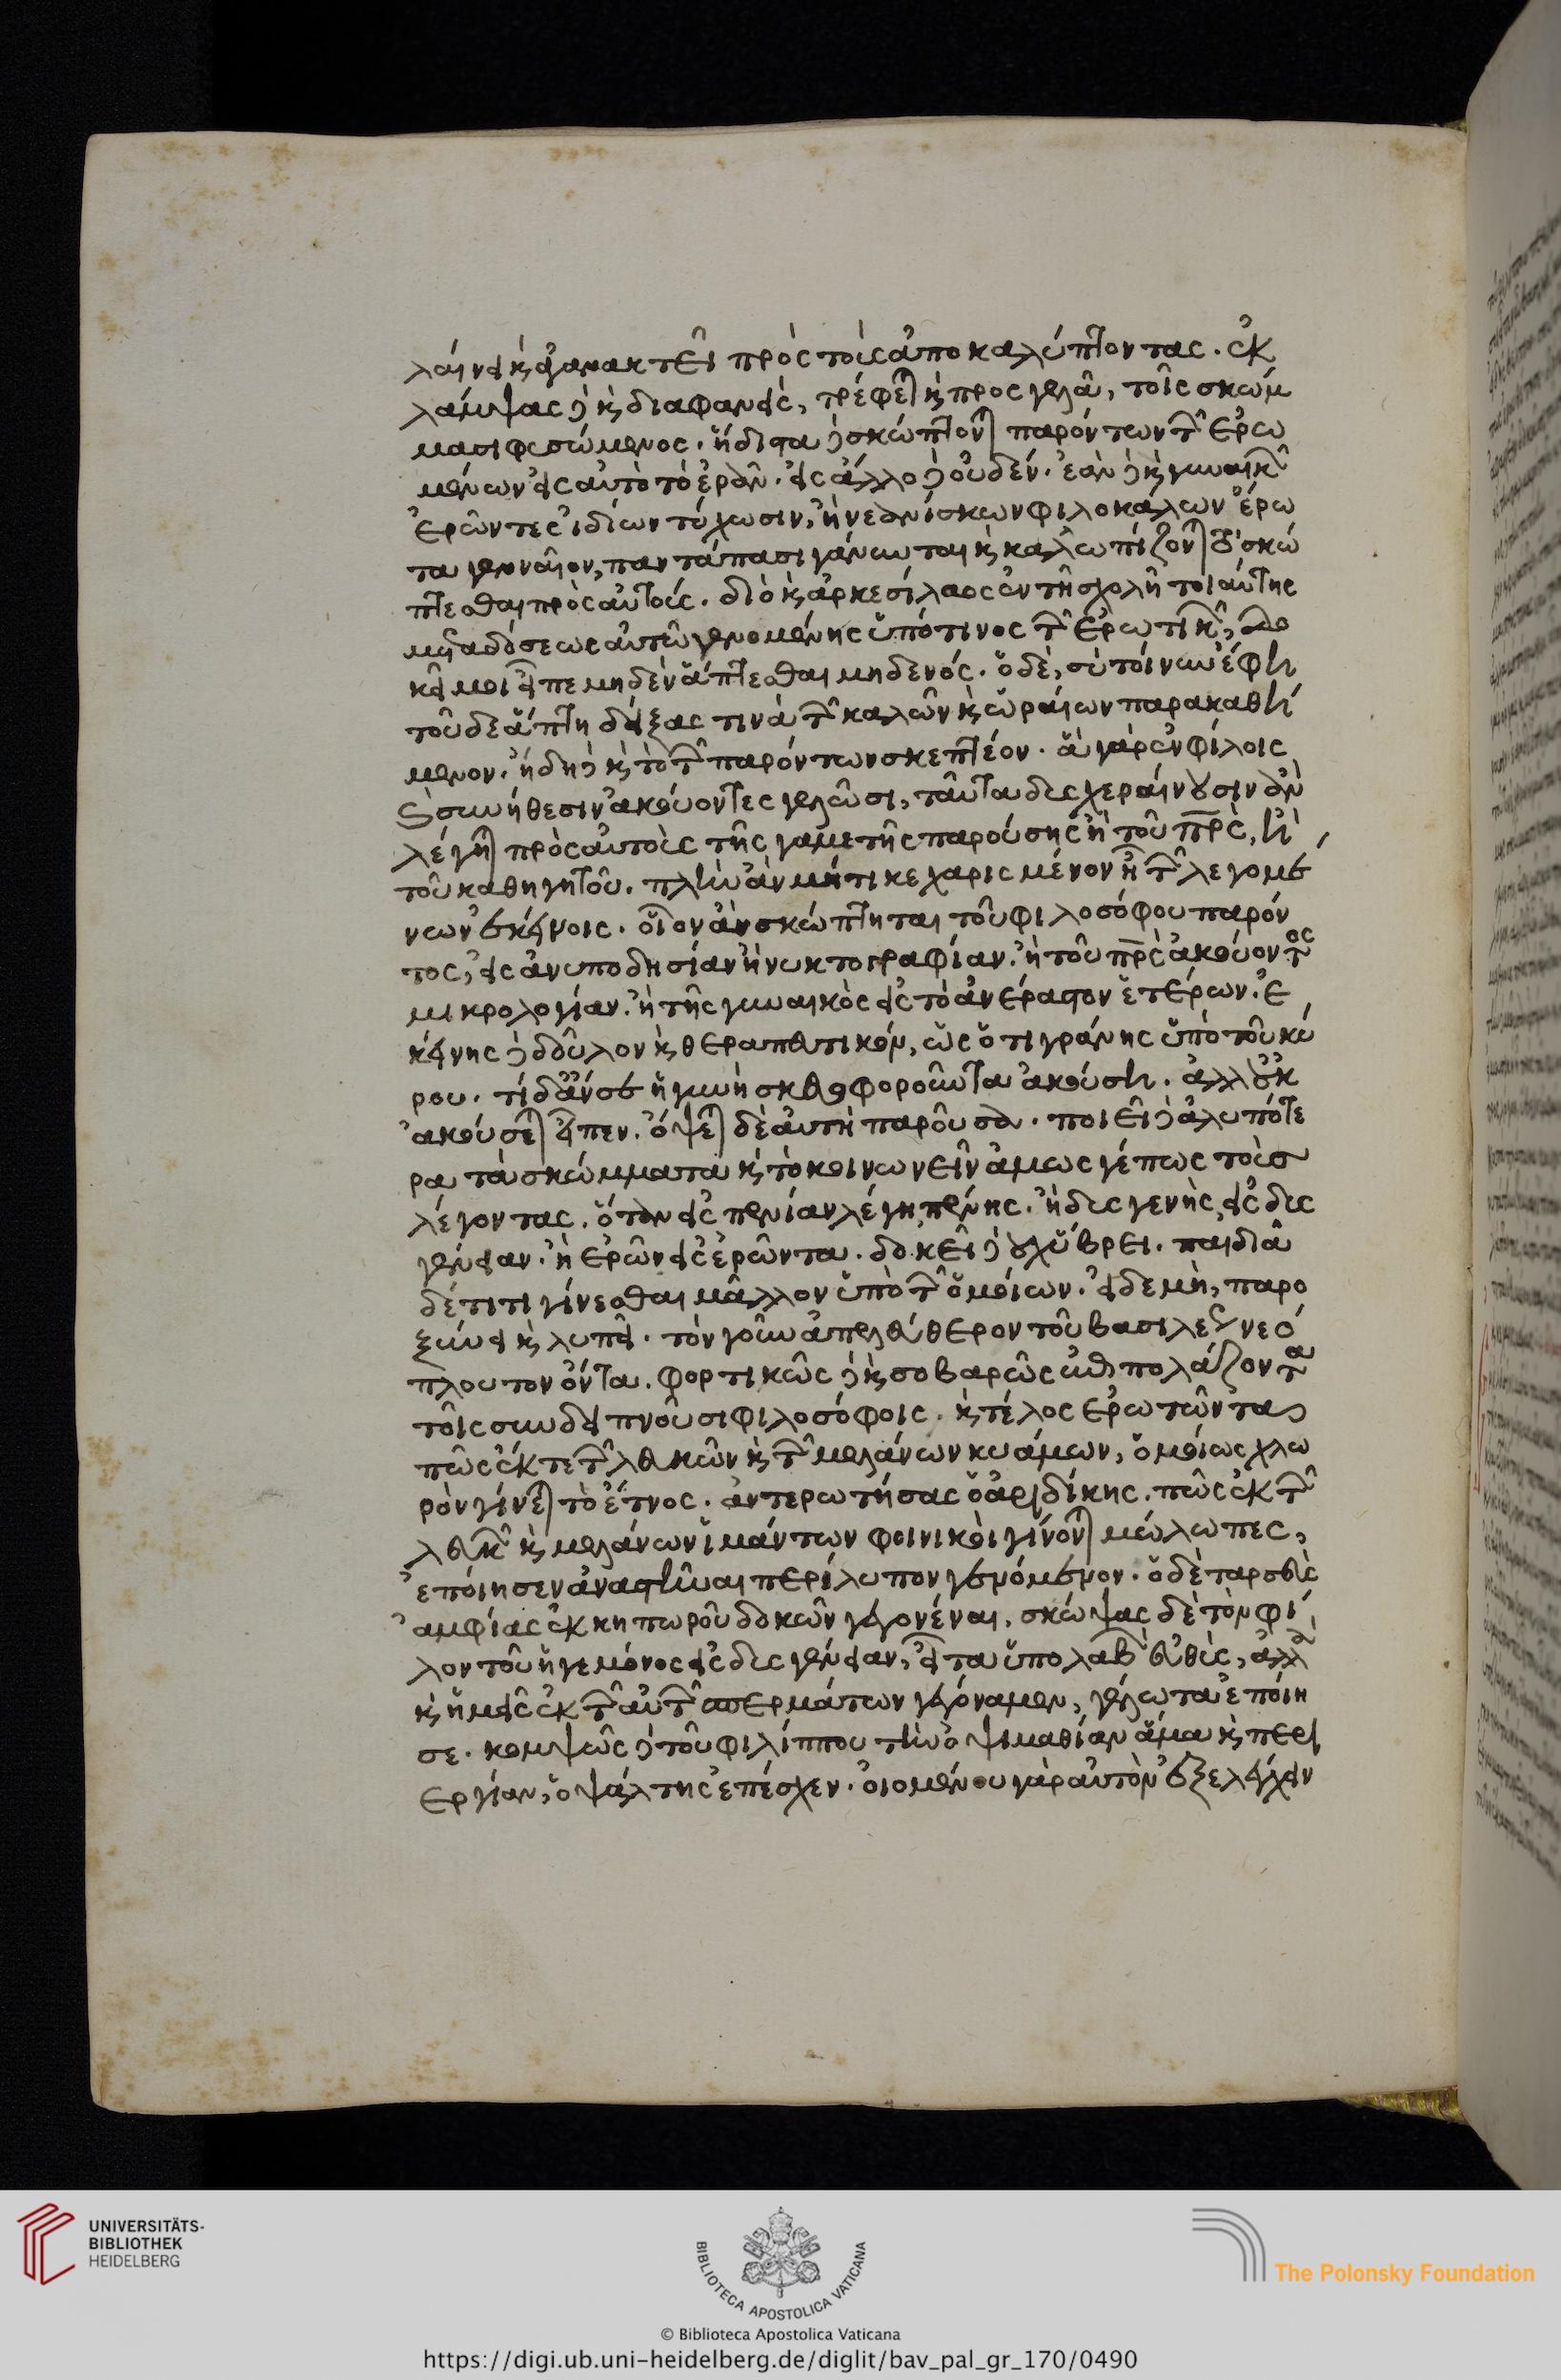 λαίνει καὶ ἀγανακτεῖ πρὸς τοὺς ἀποκαλύπτοντας. ἐκ
λάμψας δὲ καὶ διαφανεὶς, τρέφεται καὶ προσγελᾶ, τοῖς σκώμ
μασι φυσώμενος. ἥδιστα δὲ σκώπτονται παρόντων τῶν ἐρω
μένων εἰς αὐτὸ τὸ ἐρᾶν. εἰς ἄλλο δὲ οὐδέν. ἐὰν δὲ καὶ γυναικῶν
ἐρῶντες ἰδίων τύχωσιν, ἢ νεανίσκων φιλοκάλων ἔρω
τα γενναῖον, παντάπασι γάνυνται καὶ καλλωπίζονται τῷ σκώ
πτεσθαι πρὸς αὐτούς. διὸ καὶ ἀρκεσίλαος ἐν τῇ σχολῇ τοιαύτης
μεταδόσεως αὐτῷ γενομένης ὑπό τινος τῶν ἐρωτικῶν, δο
κεῖ μοι εἶπε μηδὲν ἅπτεσθαι μηδενός. ὁ δὲ, σὺ τοίνυν ἔφη
τοῦδε ἅπτη δείξας τινὰ τῶν καλῶν καὶ ὡραίων παρακαθή
μενον. ἤδη δὲ καὶ τὸ τῶν παρόντων σκεπτέον. ἃ γὰρ ἐν φίλοις
καὶ συνήθεσιν ἀκούοντες γελῶσι, ταῦτα δυσχεραίνουσιν ἂν
λέγηται πρὸς αὐτοὺς τῆς γαμετῆς παρούσης ἢ τοῦ πρς, ἢ
τοῦ καθηγητοῦ. πλὴν ἂν μή τι κεχαρισμένον ᾖ τῶν λεγομέ
νων ἐκείνοις. οἷον ἂν σκώπτηται τοῦ φιλοσόφου παρόν
τος, εἰς ἀνυποδησίαν ἢ νυκτογραφίαν. ἢ τοῦ πρς ἀκούοντος
μικρολογίαν. ἢ τῆς γυναικὸς εἰς τὸ ἀνέραστον ἑτέρων. ἐ
κείνης δὲ δοῦλον καὶ θεραπευτικόν, ὡς ὁ τιγράνης ὑπὸ τοῦ κύ
ρου. τί δ' ἄν σε ἡ γυνὴ σκευοφοροῦντα ἀκούσῃ. ἀλλ' οὐκ
ἀκούσεται εἶπεν. ὄψεται δὲ αὐτὴ παροῦσα. ποιεῖ δὲ ἀλυπότε
ρα τὰ σκώμματα καὶ τὸ κοινωνεῖν ἁμῶς γέ πως τοὺς
λέγοντας. ὅταν εἰς πενίαν λέγῃ πένης. ἢ δυσγενὴς, εἰς δυς
γένειαν. ἢ ἐρῶν εἰς ἐρῶντα. δοκεῖ δὲ οὐχ ὕβρει. παιδιᾶ
δέ τι τι γίνεσθαι μᾶλλον ὑπὸ τῶν ὁμοίων. εἰ δὲ μὴ, παρο
ξύνει καὶ λυπεῖ. τὸν γοῦν ἀπελεύθερον τοῦ βασιλέως νεό
πλουτον ὄντα. φορτικῶς δὲ καὶ σοβαρῶς ἐπιπολάζοντα
τοῖς συνδειπνοῦσι φιλοσόφοις. καὶ τέλος ἐρωτῶντα
πῶς ἔκ τε τῶν λευκῶν καὶ τῶν μελάνων κυάμων, ὁμοίως χλω
ρὸν γίνεται τὸ ἔτνος. ἀντερωτήσας ὁ ἀριδίκης. πῶς ἐκ τῶν
λευκῶν καὶ μελάνων ἱμάντων φοινικοῖ γίνονται μώλωπες,
ἐποίησεν ἀναστῆναι περίλυπον γενόμενον. ὁ δὲ ταρσεὺς
ἀμφίας ἐκ κηπωροῦ δοκῶν γεγονέναι. σκώψας δὲ τὸν φί
λον τοῦ ἡγεμόνος εἰς δυσγένειαν, εἶτα ὑπολαβὼν εὐθὺς, ἀλλὰ
καὶ ἡμεῖς ἐκ τῶν αὐτῶν σπερμάτων γεγόναμεν, γέλωτα ἐποίη
σε. κομψῶς δὲ τοῦ φιλίππου τὴν ὀψιμαθίαν ἅμα καὶ περι
εργίαν, ὁ ψάλτης ἐπέσχεν. οἰομένου γὰρ αὐτὸν ἐξελέγχειν
UNIVERSITÄTS-
BIBLIOTHEK
HEIDELBERG
BIBLIOTECA APOSTOLICA VATICANA
The Polonsky Foundation
© Biblioteca Apostolica Vaticana
https://digi.ub.uni-heidelberg.de/diglit/bav_pal_gr_170/0490